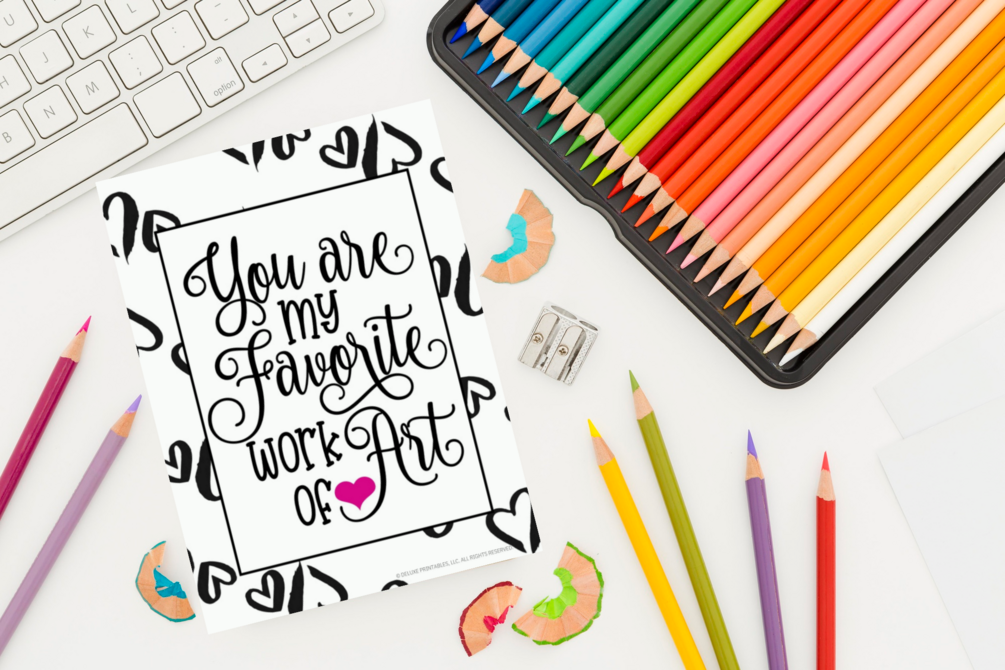 J
K
L
H
B
N
M
:
;
alt
option
You are
my
Favorite
work Art
OF
© DELUXE PRINTABLES, LLC. ALL RIGHTS RESERVED.